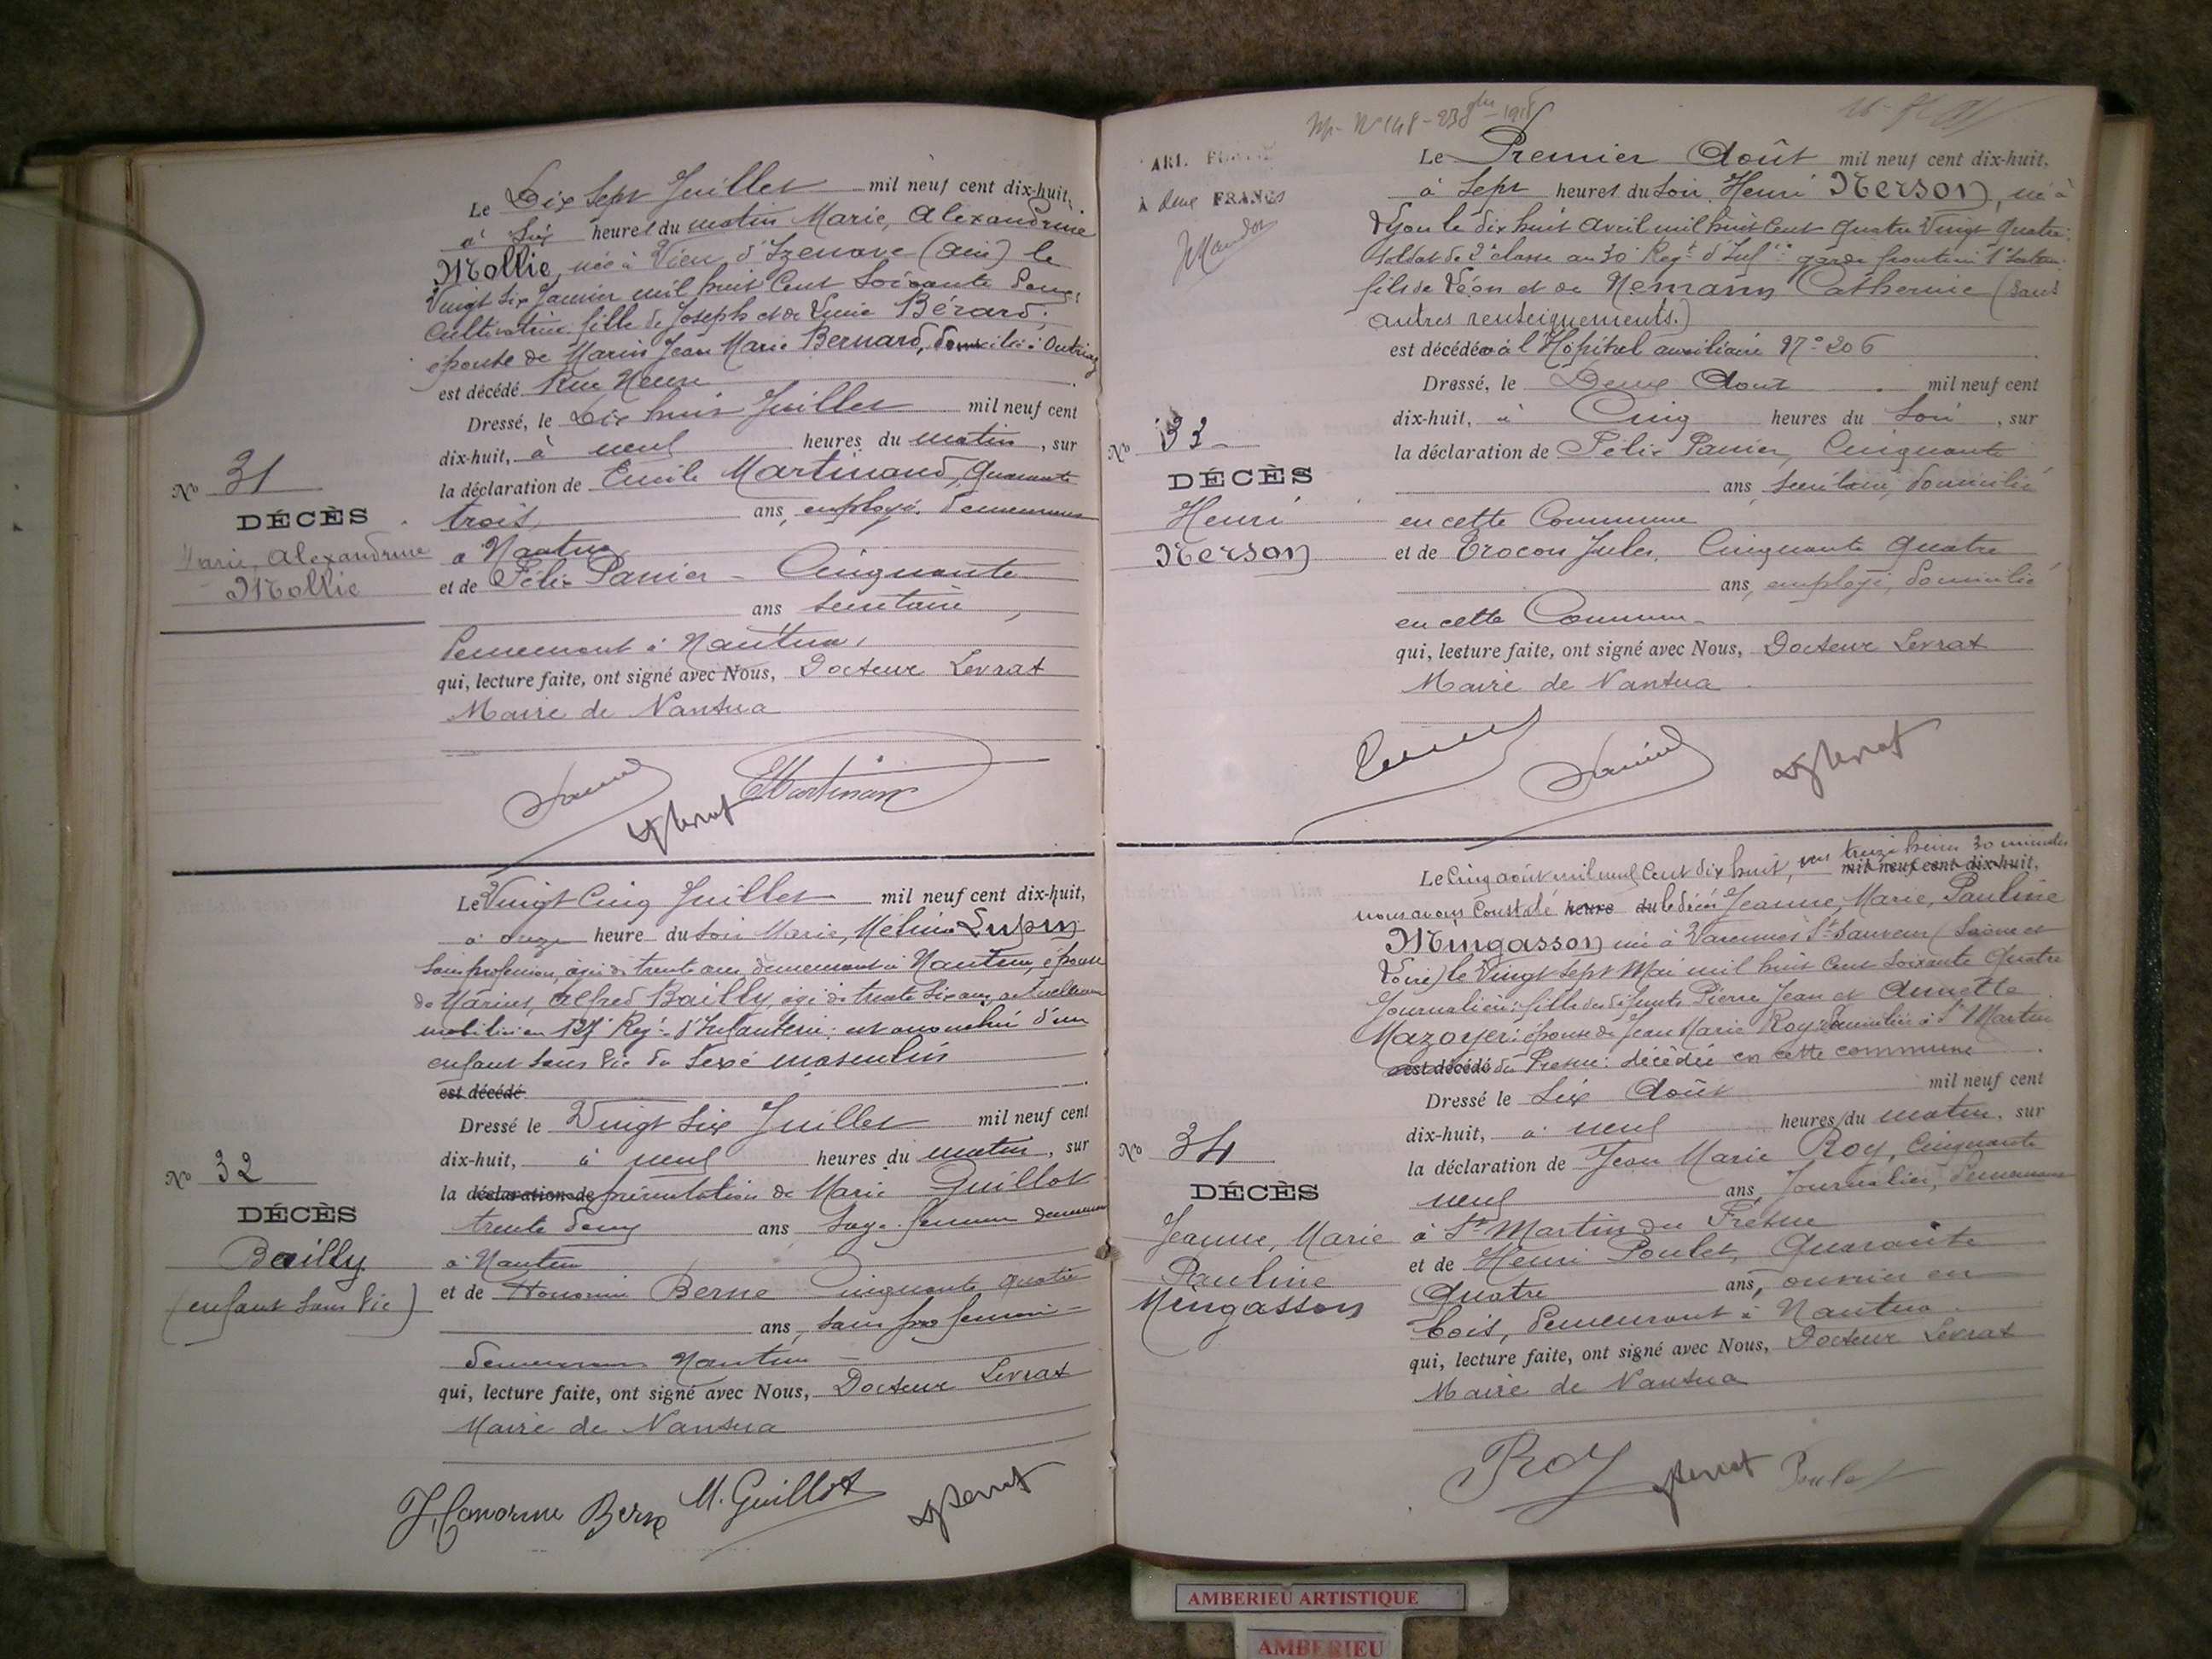 Le Dix Sept Juillet mil neuf cent dix-huit,
à Six heures du matin Marie, Alexandrine
Mollie, née à Vieu d'Izenave (Ain) le
Vingt Six Janvier mil huit Cent Soixante Douze,
Cultivatrice fille de Joseph et de Bérard;
épouse de Marin Jean Marie Bernard, domicilié à Outriaz
est décédé Rue Neuve
Dressé, le Dix huit Juillet mil neuf cent
dix-huit, à neuf heures du matin, sur
la déclaration de Emile Martinand, Quarante
trois, ans, employé, demeurant
à Nantua
et de Félix Panier - Cinquante
ans secrétaire,
demeurant à Nantua,
qui, lecture faite, ont signé avec Nous, Docteur Levrat
Maire de Nantua
No 31
DÉCÈS
Marie, Alexandrine
Mollie
Le Vingt Cinq Juillet mil neuf cent dix-huit,
à onze heure du Soir Marie,
Sans profession, âgée de trente ans, demeurant à Nantua, épouse
de Marius, Alfred Bailly, âgé de trente six ans, actuellement
mobilisé au Regt d'Infanterie; est accouchée d'un
enfant Sans Vie du Sexe masculin
est décédé
Dressé le Vingt Six Juillet mil neuf cent
dix-huit, à neuf heures du matin, sur
la déclaration de présentation de Marie Guillot
trente deux ans, Sage-femme demeurant
à Nantua
et de Honorine Berne Cinquante quatre
ans, Sans profession
demeurant Nantua
qui, lecture faite, ont signé avec Nous, Docteur Levrat
Maire de Nantua
Honorine Berne M. Guillot
No 32
DÉCÈS
Bailly
(enfant Sans Vie)
À deux FRANCS
Le Premier Août mil neuf cent dix-huit,
à Sept heures du Soir Henri Nerson, né à
Lyon le dix huit Avril mil huit Cent Quatre Vingt Quatre
Soldat de 2e classe au 30e Regt d'Infie garde frontière
fils de Léon et de Nemann Catherine (Sans
autres renseignements.)
est décédé à l'Hôpital auxiliaire No 206
Dressé, le Deux Août mil neuf cent
dix-huit, à Cinq heures du Soir, sur
la déclaration de Félix Panier, Cinquante
ans, secrétaire, domicilié
en cette Commune
et de Trocon Jules, Cinquante Quatre
ans, employé, domicilié
en cette Commune
qui, lecture faite, ont signé avec Nous, Docteur Levrat
Maire de Nantua
No 33
DÉCÈS
Henri
Nerson
Le Cinq août mil neuf Cent dix huit, vers treize heures 30 minutes mil neuf cent dix-huit,
nous avons Constaté heure du le décès Jeanne, Marie, Pauline
Mingasson née à Varennes St Sauveur (Saône et
Loire) le Vingt Sept Mai mil huit Cent Soixante Quatre
Journalière; fille des défunts Pierre Jean et Annette
Mazoyer; épouse de Jean Marie Roy; domicilié à St Martin
est décédé du Fresne: décédée en cette commune
Dressé le Six Août mil neuf cent
dix-huit, à neuf heures du matin, sur
la déclaration de Jean Marie Roy, Cinquante
neuf ans, Journalier, demeurant
à St Martin du Fresne
et de Henri Poulet, Quarante
Quatre ans, ouvrier en
bois, demeurant à Nantua
qui, lecture faite, ont signé avec Nous, Docteur Levrat
Maire de Nantua
Roy Poulet
No 34
DÉCÈS
Jeanne, Marie
Pauline
Mingasson
AMBERIEU ARTISTIQUE
AMBERIEU